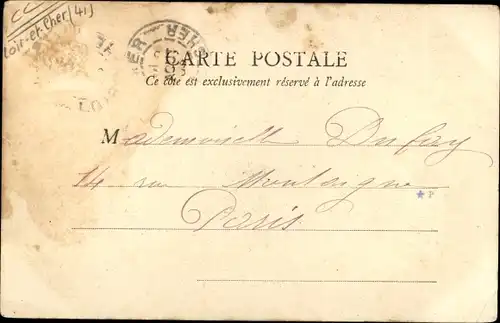 CC
Loir-et-Cher (41)
CARTE POSTALE
Ce côté est exclusivement réservé à l'adresse
Mademoiselle Dufay
14 rue Montaigne
Paris
* P